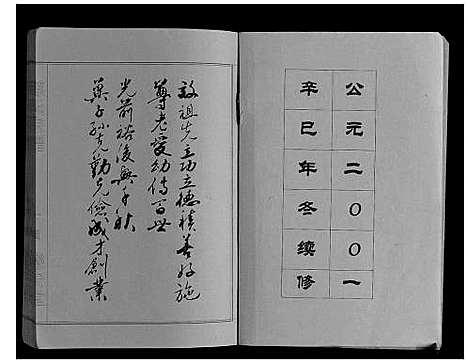 公元二〇〇一
辛巳年冬续修
致祖先立功立德積善好施
尊老愛幼傳百世
光前裕後興千秋
冀子孫克勤克儉成才創業